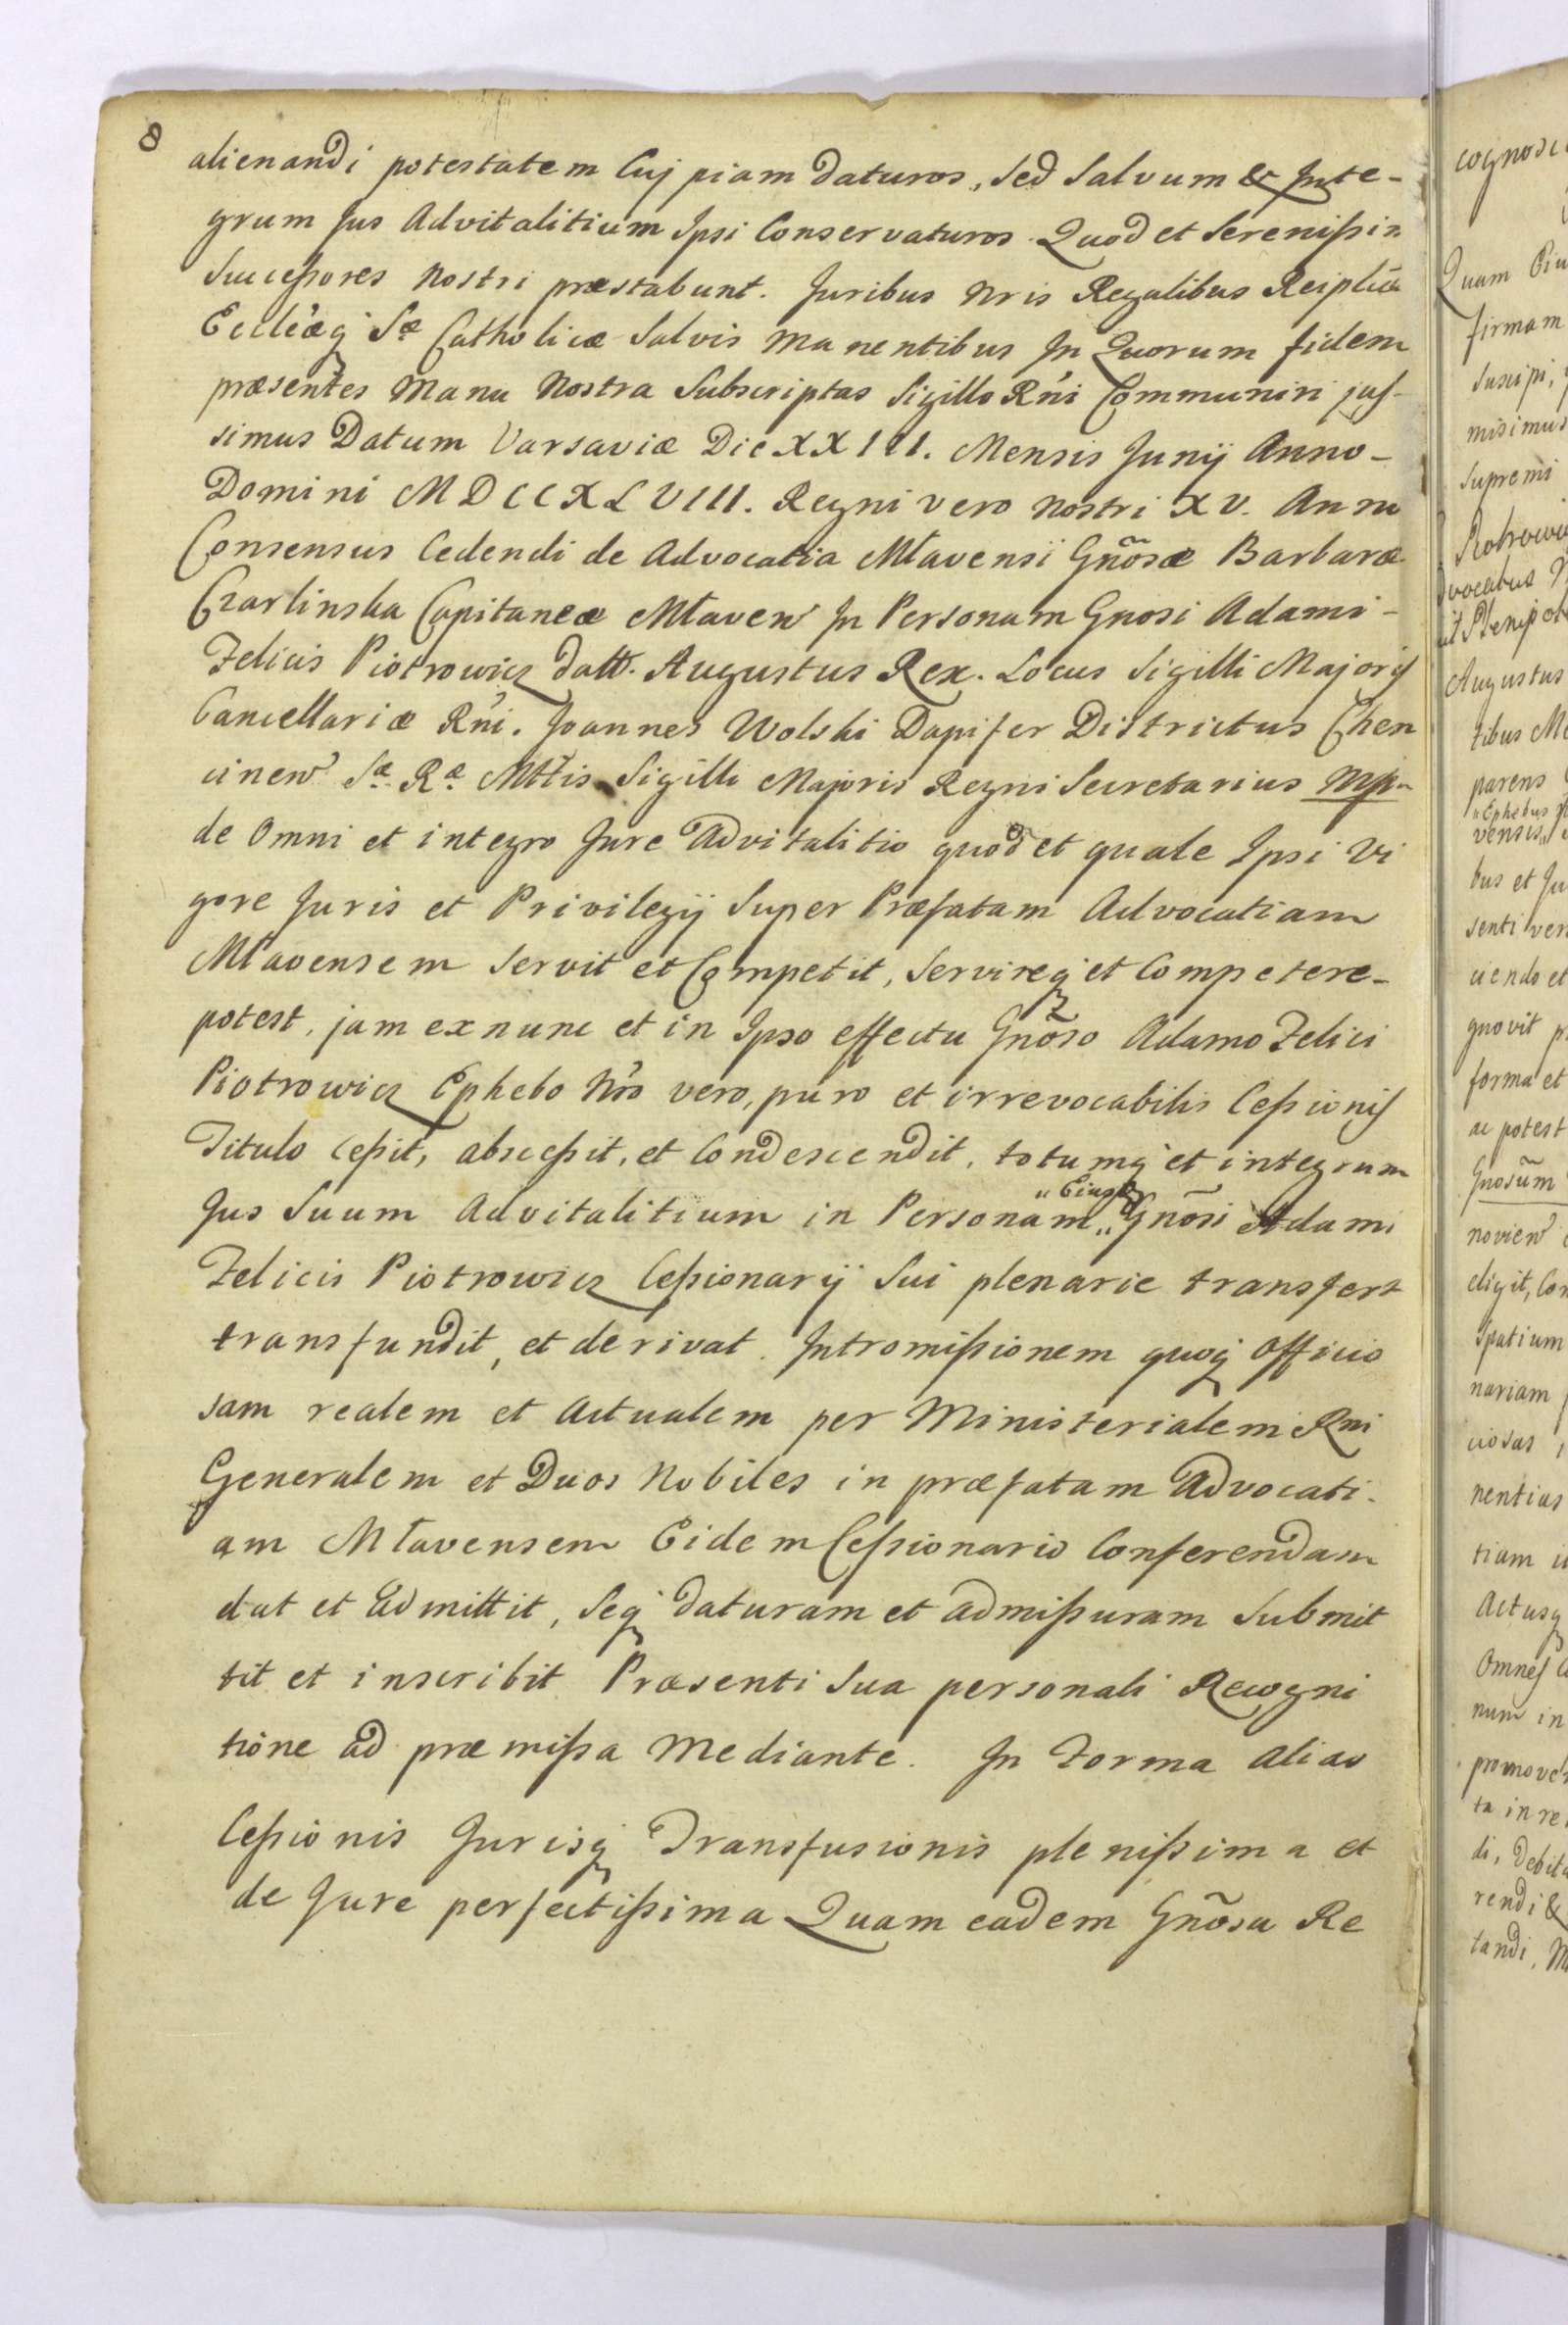 8
alienandi potestatem Cuj piam daturos, sed Salvum & Inte-
grum Jus Advitalitium Ipsi Conservaturos. Quod et Serenißin
Succeßores Nostri præstabunt. Juribus Nris Regalibus Reiplicæ
Eccleæq Sæ Catholicæ Salvis manentibus In Quorum fidem
præsentes Manu Nostra Subscriptas Sigillo Rńi Communiri jus-
simus Datum Varsaviæ Die XXIII. Mensis Junij Anno-
Domini MDCCXLVIII. Regni vero Nostri XV. Anno
Consensus Cedendi de Advocatia Mławensi Gnõsæ Barbaræ
Czarlinska Capitaneæ Mławen In Personam Gnosi Adami-
Felicis Piotrowicz datt. Augustus Rex. Locus Sigilli Majoris
Cancellariæ Rńi. Joannes Wolski Dapifer Districtus Chen
cinen Sæ Ræ Mttis Sigilli Majoris Regni Secretarius Mp-
de Omni et integro Jure Advitalitio quod et quale Ipsi Vi
gore Juris et Privilegij Super Præfatam Advocatiam
Młavensem Servit et Competit, Servireq et Competere-
potest, jam ex nunc et in Ipso effectu Gnõso Adamo Felici
Piotrowicz Ephebo Nro vero, puro et irrevocabilis Ceßionis
Titulo ceßit, absceßit, et Condescendit, totumq et integrum
Jus Suum Advitalitium in Personam „Eiusd„ Gnõsi Adami
Felicis Piotrowicz Ceßionarij Sui plenarie transfert
transfundit, et derivat. Intromißionem quoq officio
sam realem et Actualem per Ministerialem Rni
Generalem et Duos Nobiles in præfatam Advocati-
am Młavensem Eidem Ceßionario Conferendam
dat et admittit, Seq daturam et admißuram Submit
tit et inscribit Præsenti Sua personali Recogni
tione ad præmißa Mediante. In Forma alias
Ceßionis Jurisq Transfusionis plenißima et
de Jure perfectißima Quam eadem Gnõsa Re
Quam
firmam
suscipi,
misimus
Supremi
Augustus
tibus
parens
vensis
bus et
forma et
ac potest
Gnosũm
eligit,
Spatium
nariam
nentias
tiam
Actusq
Omnes
num in
di, Debita
rendi &
tandi,